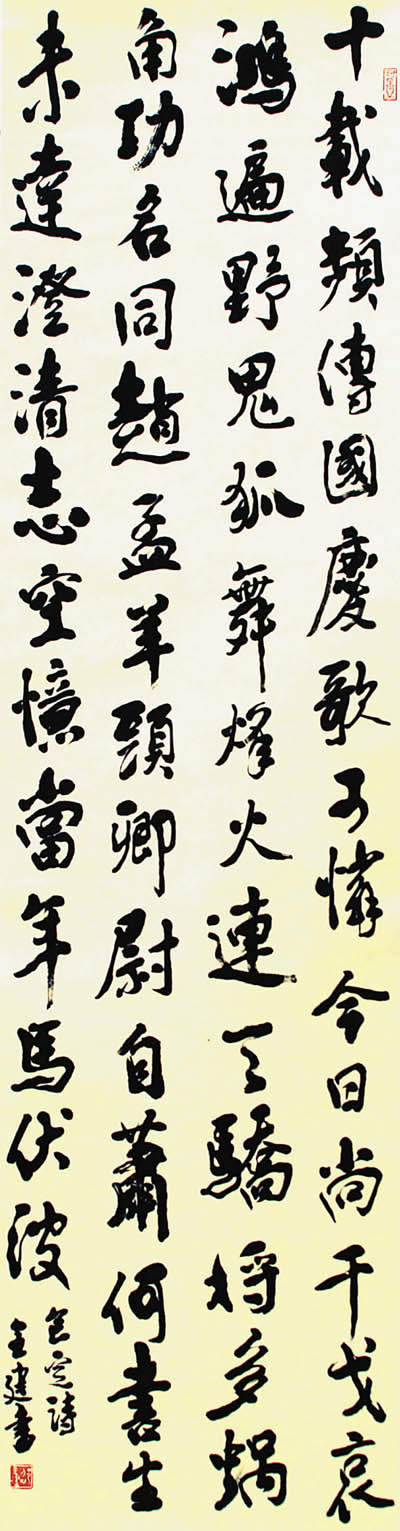 十載頻傳國慶歌可憐今日尚干戈哀
鴻遍野鬼狐舞烽火連天驕將多蝸
角功名同趙孟羊頭卿尉自蕭何書生
未達澄清志空憶當年馬伏波
詩
全建書